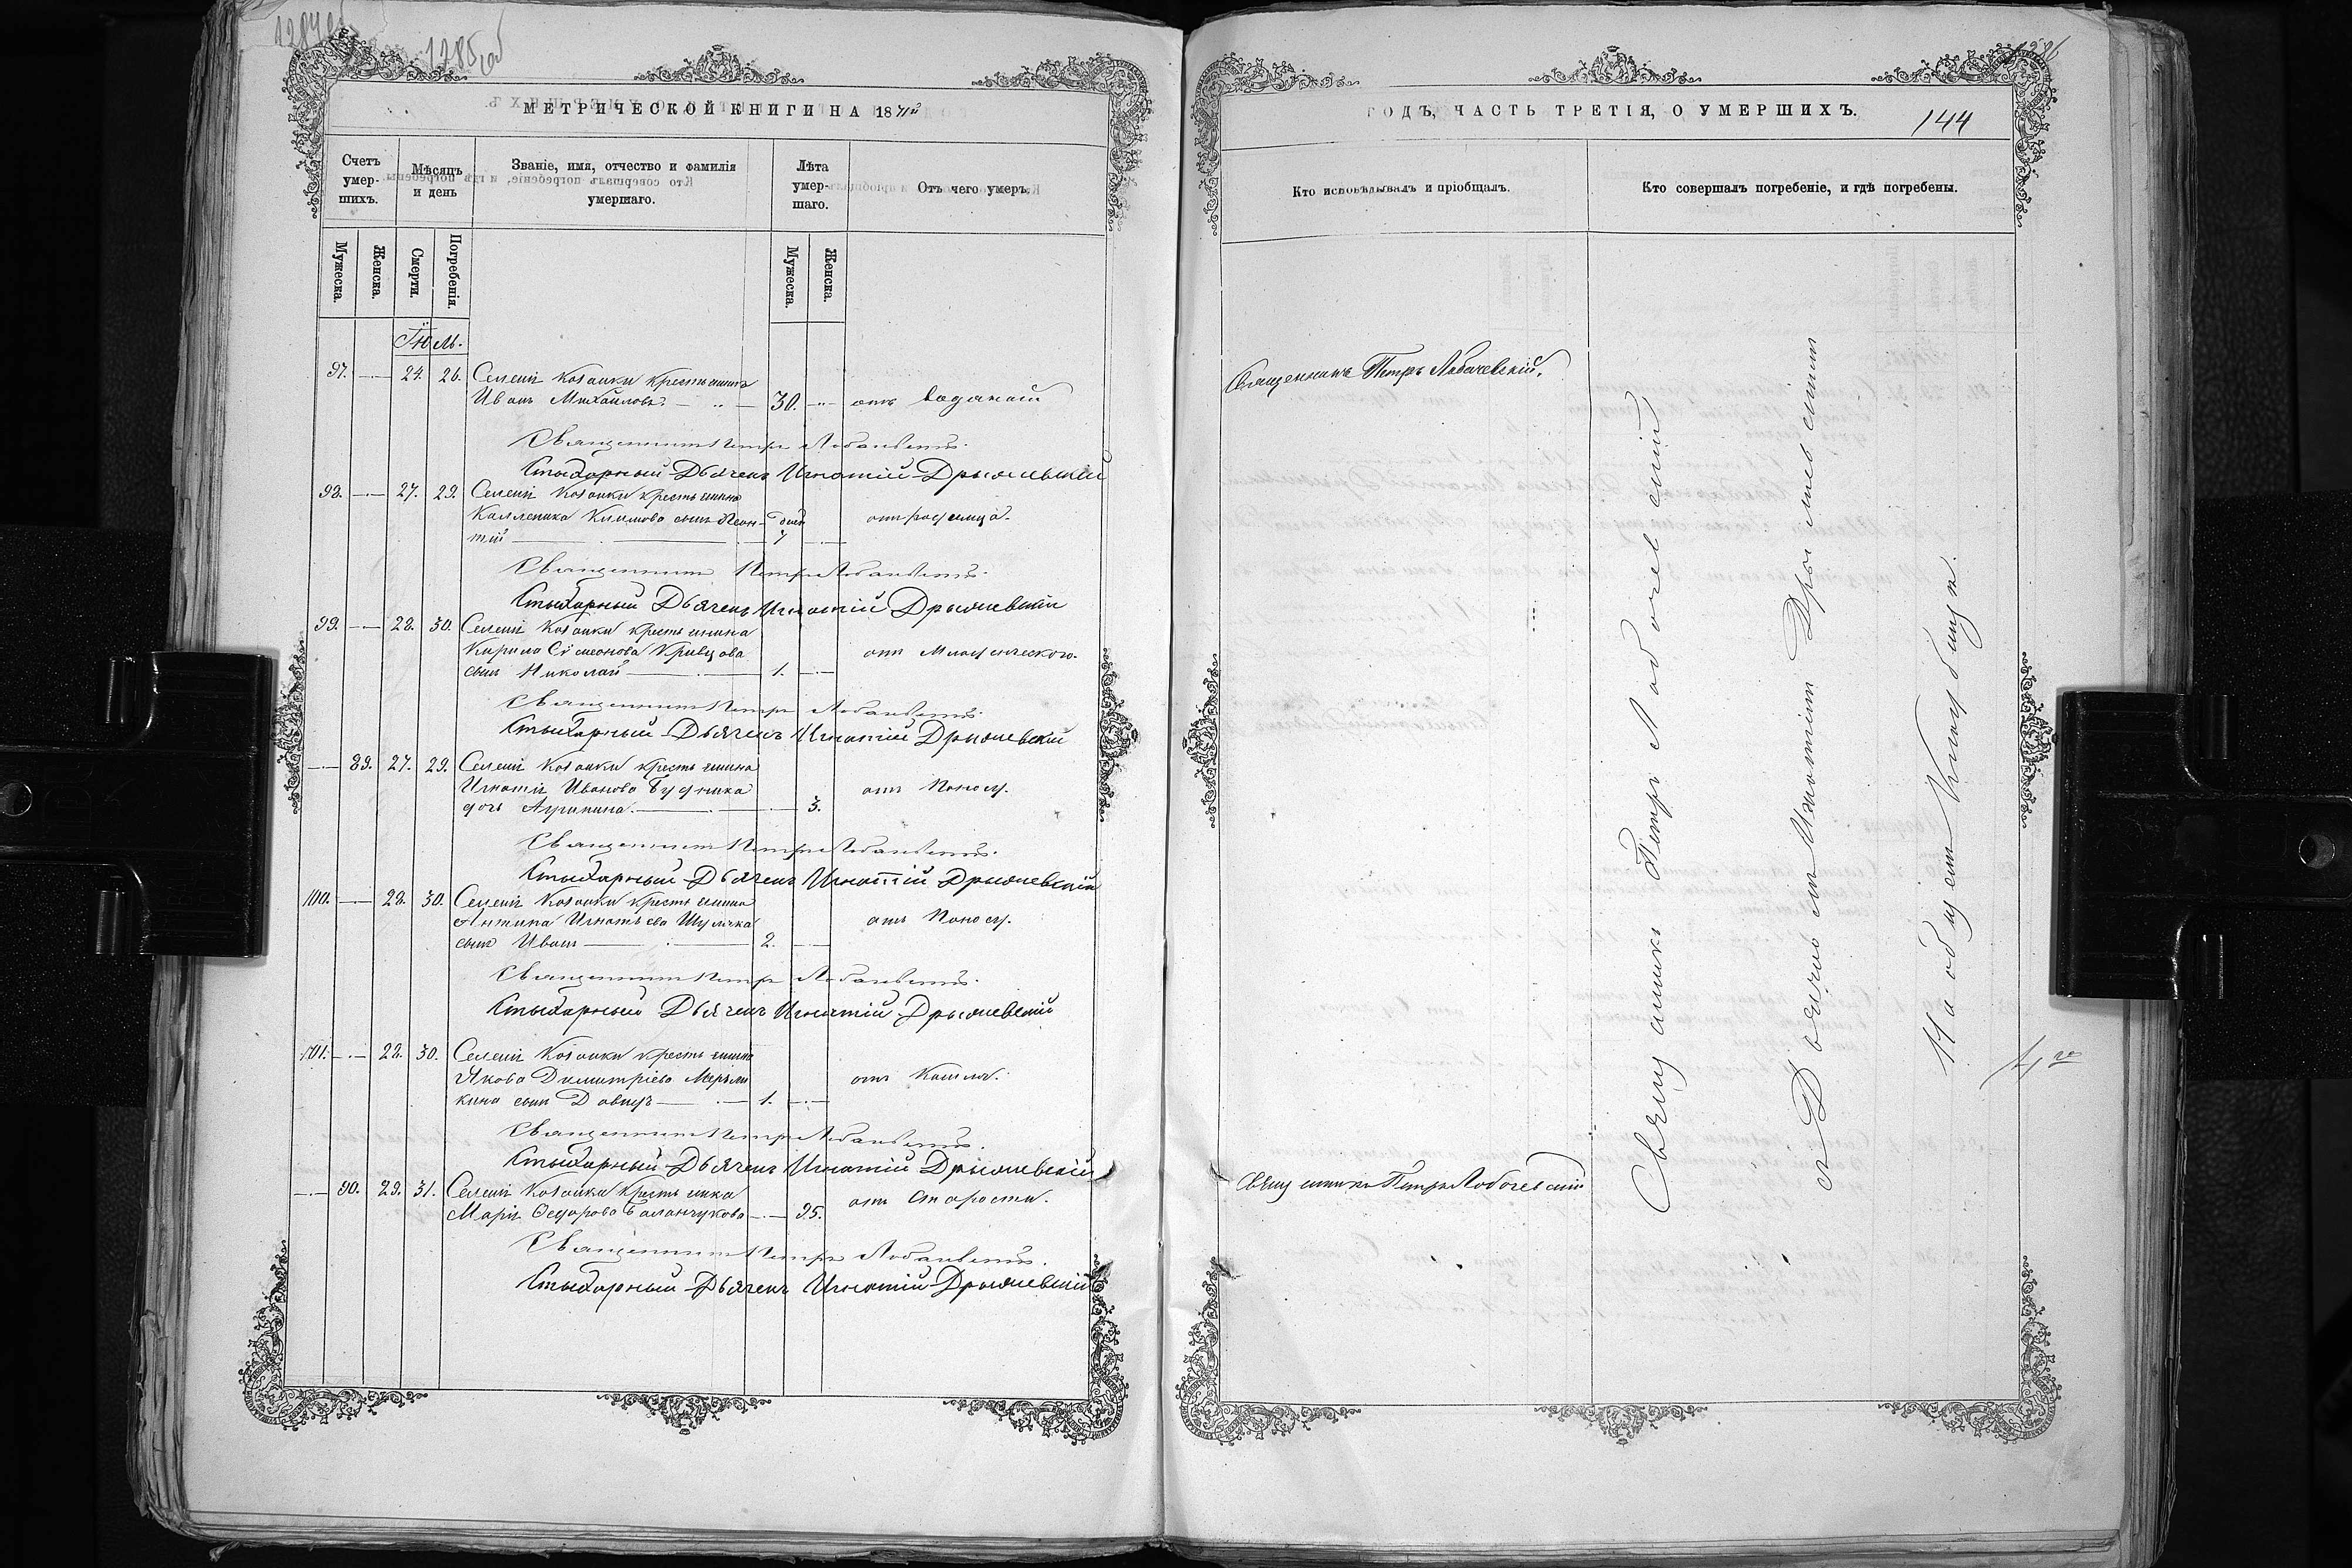 1285 об
МЕТРИЧЕСКОЙ КНИГИ НА 1871й
Счетъ умер- шихъ.
Мѣсяцъ и день
Званіе, имя, отчество и фамилія умершаго.
Лѣта умер- шаго.
Отъ чего умеръ.
Мужеска.
Женска.
Смерти.
Погребенія.
Мужеска.
Женска.
97. 24. 26. Селенія Козачки крестьянинъ
Иванъ Михайловъ. 30. отъ водяной
Священникъ Петръ Лобачевскій.
Стихарный Дьячекъ Игнатій
98. 27. 29. Селенія Козачки крестьянина
Каленика Климова сынъ Леон- дней
тій 7
Священникъ Петръ Лобачевскій.
Стихарный Дьячекъ Игнатій
99. 28. 30. Селенія Козачки крестьянина
Кирила Сѵмеонова Кривцова отъ Младенческого.
сынъ Николай 1.
Священникъ Петръ Лобачевскій.
Стихарный Дьячекъ Игнатій
89. 27. 29. Селенія Козачки крестьянина
Игнатія Иванова Будника отъ Поносу.
дочь Агрипина. 3.
Священникъ Петръ Лобачевскій.
Стихарный Дьячекъ Игнатій
100. 28. 30. Селенія Козачки крестьянина
Антипа Игнатьева отъ Поносу.
сынъ Иванъ 2.
Священникъ Петръ Лобачевскій.
Стихарный Дьячекъ Игнатій
101. 28. 30. Селенія Козачки крестьянина
Якова Димитріева отъ Кашля.
кина сынъ Давидъ 1.
Священникъ Петръ Лобачевскій.
Стихарный Дьячекъ Игнатій
90. 29. 31. Селенія Козачки крестьянка
Марія Ѳедорова Баланчукова 95. отъ Старости.
Священникъ Петръ Лобачевскій.
Стихарный Дьячекъ Игнатій
ГОДЪ, ЧАСТЬ ТРЕТІЯ, О УМЕРШИХЪ.
144
Кто исповѣдывалъ и пріобщалъ.
Кто совершалъ погребеніе, и гдѣ погребены.
Священникъ Петръ Лобачевскій.
Священникъ Петръ Лобачевскій
Священникъ Петръ Лобачевскій
съ Дьячкомъ Игнатіемъ
На общемъ Кладбищѣ.